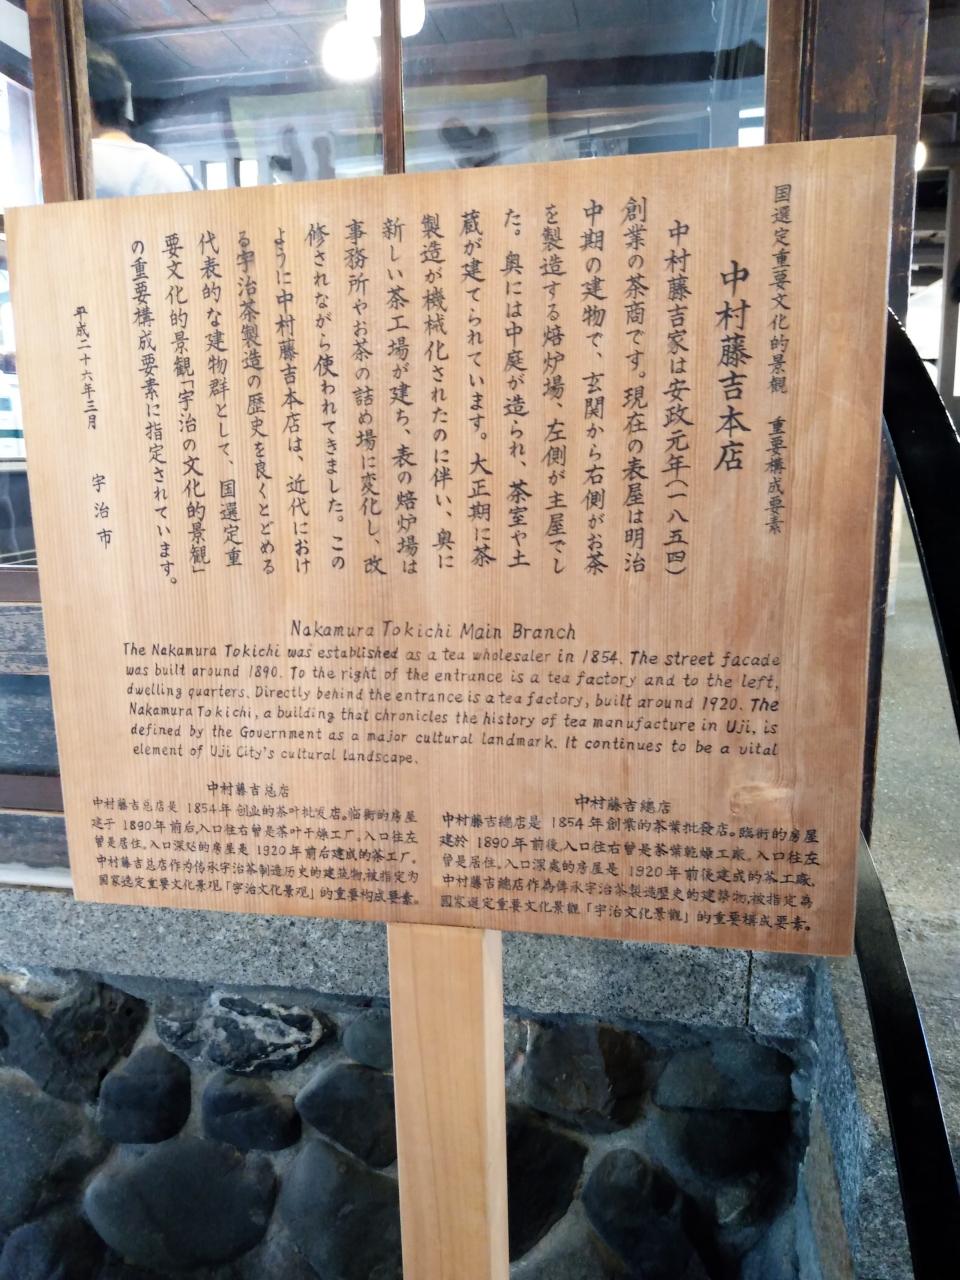 国選定重要文化的景観　重要構成要素
中村藤吉本店
中村藤吉家は安政元年(一八五四)
創業の茶商です。現在の表屋は明治
中期の建物で、玄関から右側がお茶
を製造する焙炉場、左側が主屋でし
た。奥には中庭が造られ、茶室や土
蔵が建てられています。大正期に茶
製造が機械化されたのに伴い、奥に
新しい茶工場が建ち、表の焙炉場は
事務所やお茶の詰め場に変化し、改
修されながら使われてきました。この
ように中村藤吉本店は、近代におけ
る宇治茶製造の歴史を良くとどめる
代表的な建物群として、国選定重
要文化的景観「宇治の文化的景観」
の重要構成要素に指定されています。
平成二十六年三月　宇治市
Nakamura Tokichi Main Branch
The Nakamura Tokichi was established as a tea wholesaler in 1854. The street facade
was built around 1890. To the right of the entrance is a tea factory and to the left,
dwelling quarters. Directly behind the entrance is a tea factory, built around 1920. The
Nakamura Tokichi, a building that chronicles the history of tea manufacture in Uji, is
defined by the Government as a major cultural landmark. It continues to be a vital
element of Uji City's cultural landscape.
中村藤吉总店
中村藤吉总店是 1854年创业的茶叶批发店。临街的房屋
建于 1890年前后,入口往右曾是茶叶干燥工厂。入口往左
曾是居住。入口深处的房屋是 1920年前后建成的茶工厂。
中村藤吉总店作为传承宇治茶制造历史的建筑物,被指定为
国家选定重要文化景观「宇治文化景观」的重要构成要素。
中村藤吉總店
中村藤吉總店是 1854年創業的茶葉批發店。臨街的房屋
建於 1890年前後,入口往右曾是茶葉乾燥工廠。入口往左
曾是居住。入口深處的房屋是 1920年前後建成的茶工廠,
中村藤吉總店作為傳承宇治茶製造歷史的建築物,被指定為
國家選定重要文化景觀「宇治文化景觀」的重要構成要素。